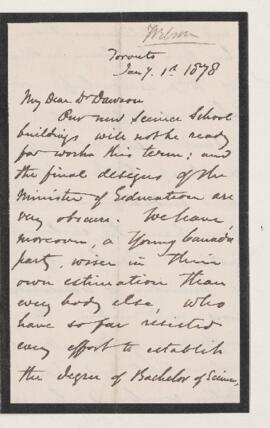 Wilson
Toronto
Jany. 1st 1878
My Dear Dr Dawson
Our new Science School
buildings will not be ready
for works this term; and
the final designs of the
Minister of Education are
very obscure. We have
moreover, a Young Canada
party, wiser in their
own estimation than
every body else, who
have so far resisted
every effort to establish
the degree of Bachelor of Science,